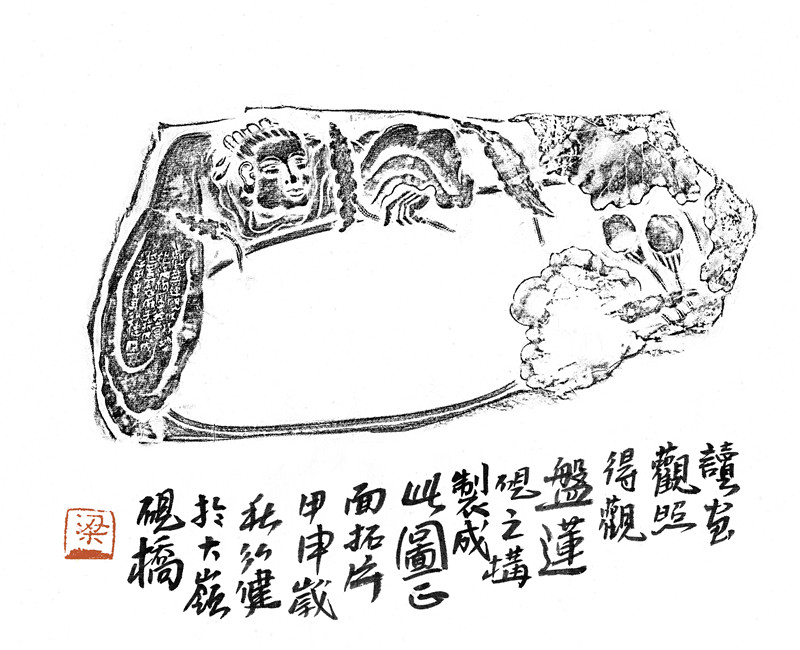 讀畫
觀照
得觀
盤蓮
硯之構
製成
此圖正
面拓片
甲申歲
秋弘健
於大嶺
硯橋
梁